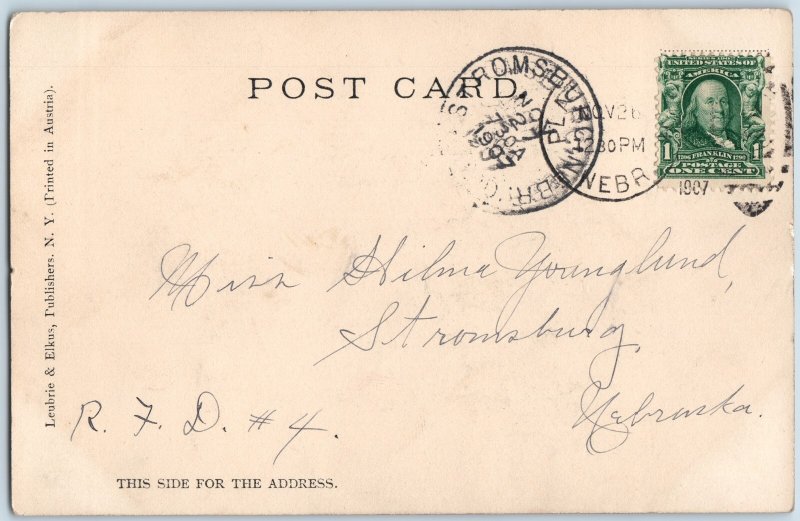 POST CARD
STROMSBURG
NEBR.
NOV 26
12 30 PM
NEBR
1907
SERIES 1902
UNITED STATES OF
AMERICA
1706 FRANKLIN 1790
POSTAGE
1 ONE CENT 1
Miss Hilma Younglund,
Stromsburg,
R. F. D. #4.
Nebraska.
THIS SIDE FOR THE ADDRESS.
Leubrie & Elkus, Publishers. N. Y. (Printed in Austria).